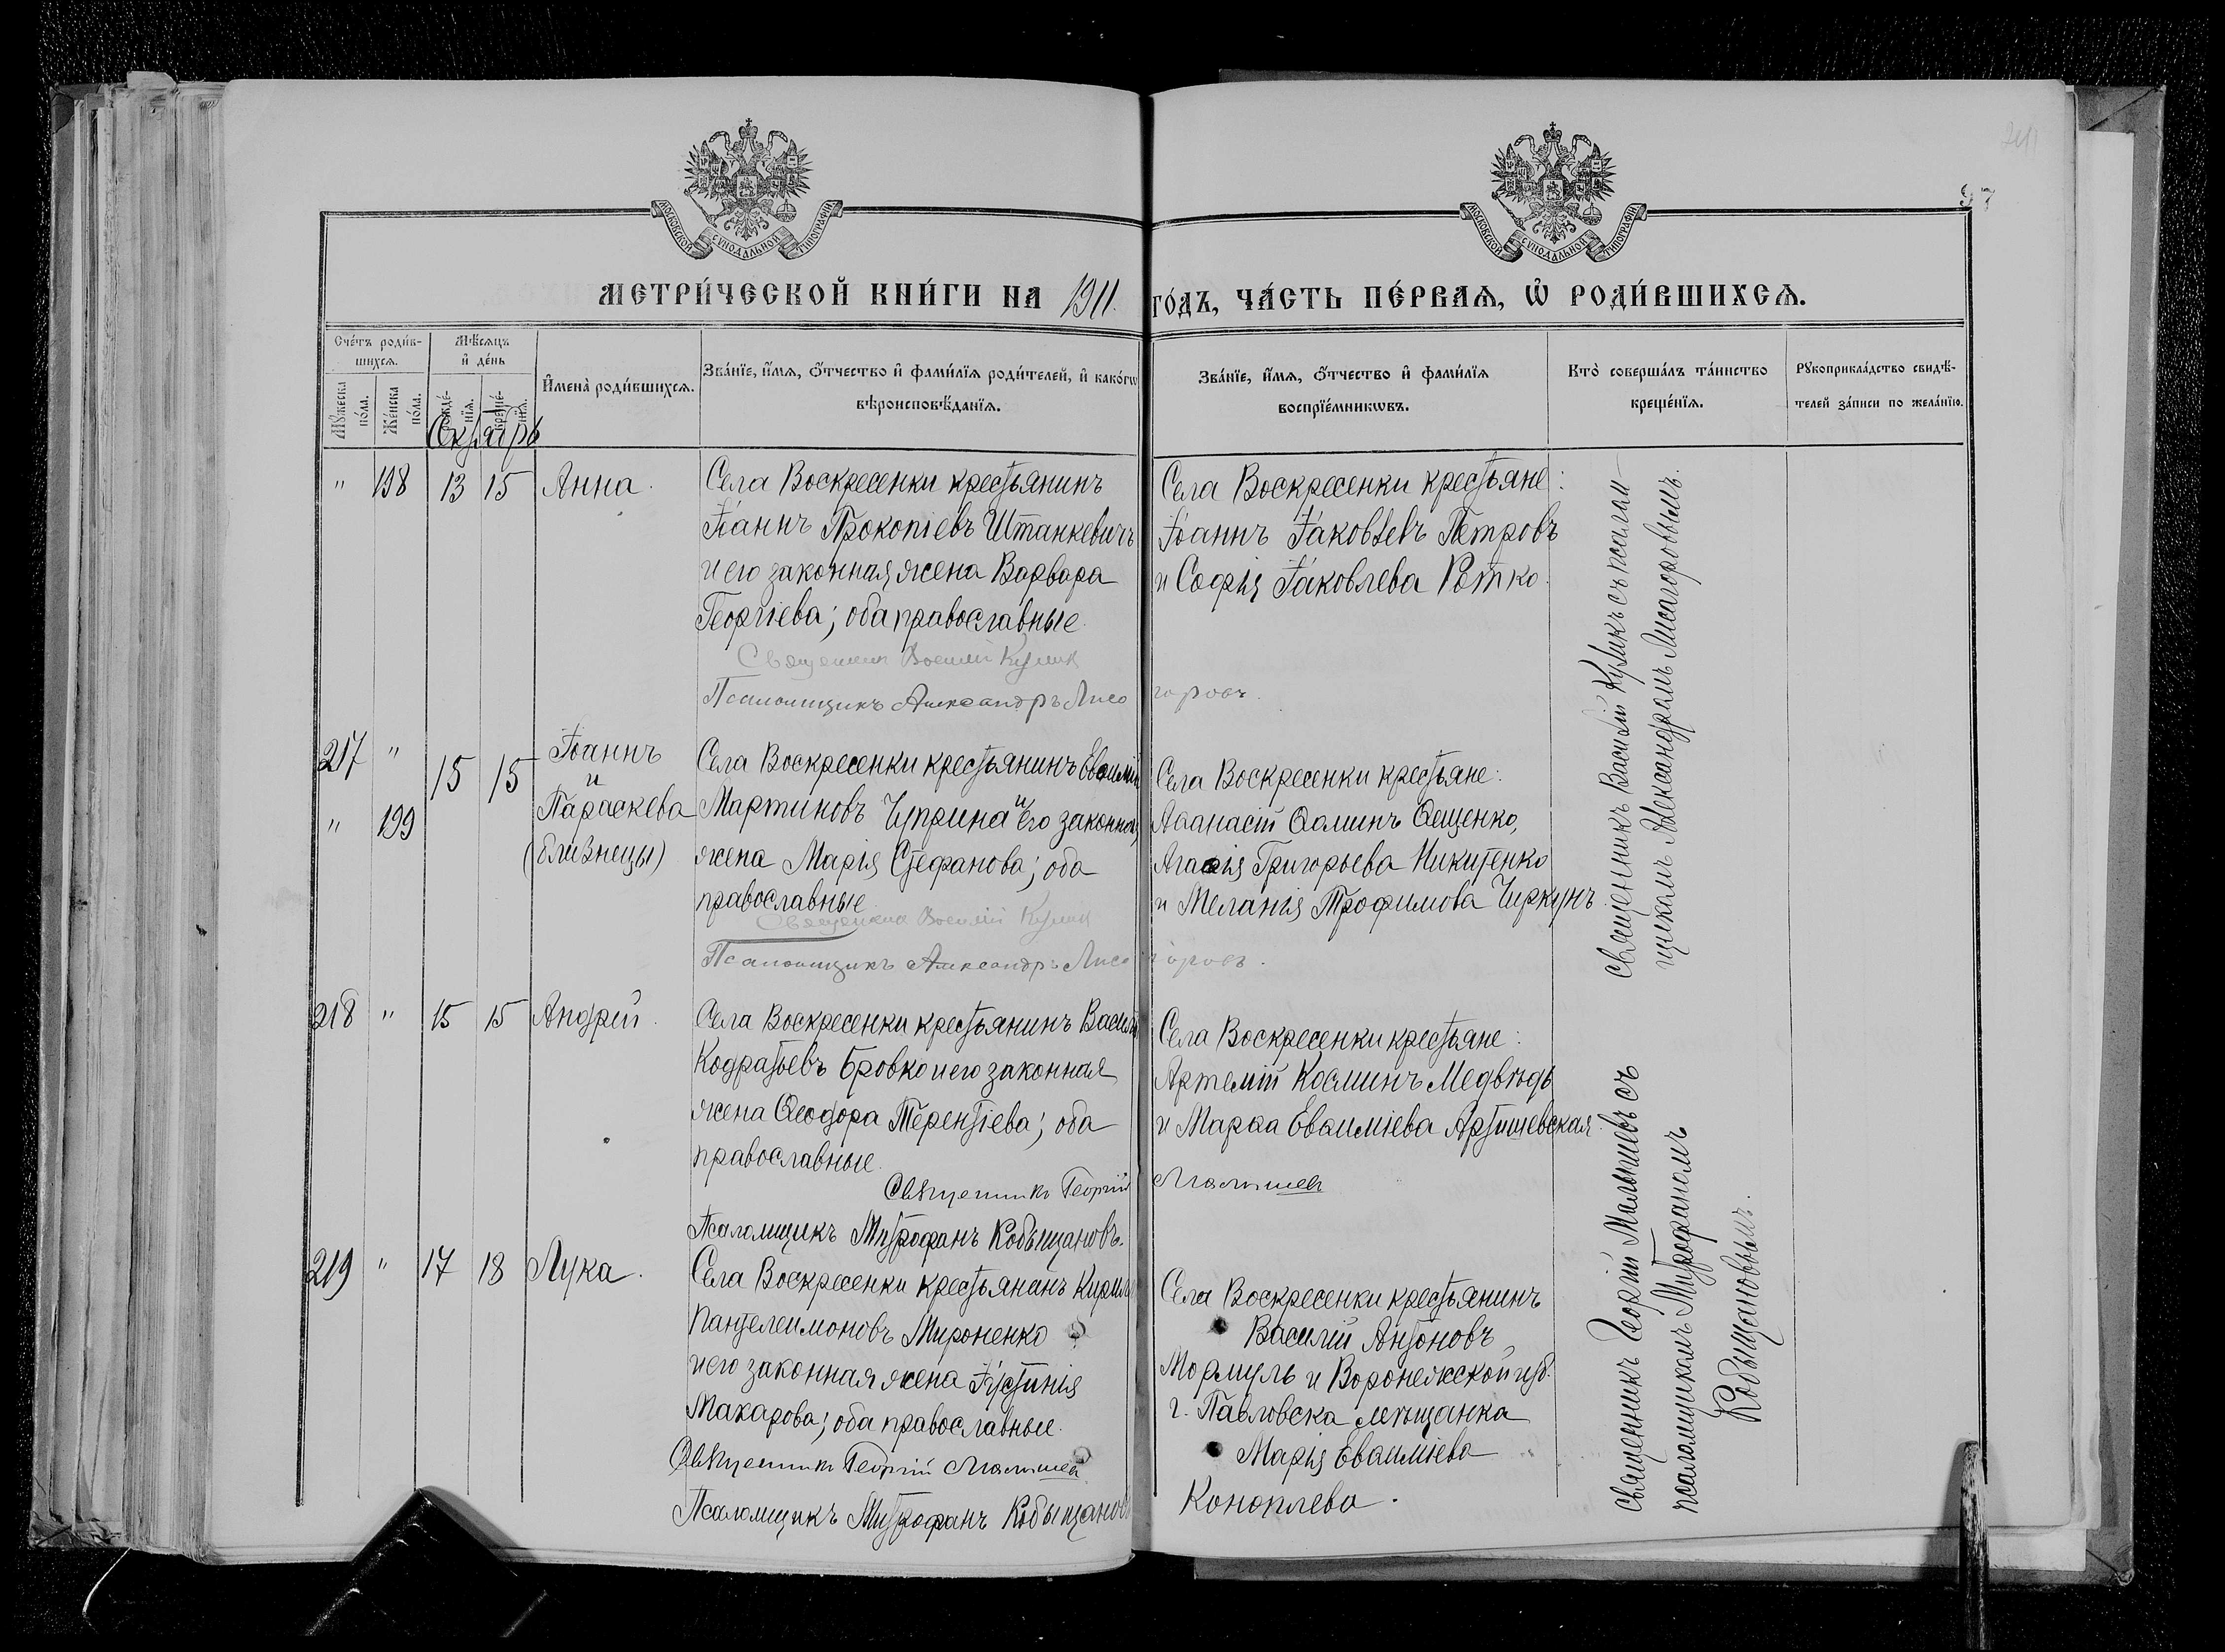 241
97
МОСКОВСКОЙ СѴНОДАЛЬНОЙ ТИПОГРАФІИ
МОСКОВСКОЙ СѴНОДАЛЬНОЙ ТИПОГРАФІИ
МЕТРИ́ЧЕСКОЙ КНИ́ГИ НА 1911 ГО́ДЪ, ЧА́СТЬ ПЕ́РВАѦ, Ѡ҆ РОДИ́ВШИХСѦ.
Сче́тъ роди́в-
шихсѧ.
Мꙋ́жеска по́ла.
Же́нска по́ла.
Мѣ́сѧцъ
и҆ де́нь
рожде́-
нїѧ.
креще́-
нїѧ.
Октябрь
И҆мена̀ роди́вшихсѧ.
Зва́нїе, и҆́мѧ, ѻ҆́тчество и҆ фами́лїѧ роди́телей, и҆ како́гѡ
вѣроисповѣ́данїѧ.
Зва́нїе, и҆́мѧ, ѻ҆́тчество и҆ фами́лїѧ
воспрїе́мникѡвъ.
Кто̀ соверша́лъ та́инство
креще́нїѧ.
Рꙋкоприкла́дство свидѣ́-
телей за́писи по жела́нїю.
" 198 13 15 Анна.
Села Воскресенки крестьянинъ
Іоаннъ Прокопіевъ Штанкевичъ
и его законная жена Варвара
Георгіева; оба православные.
Священник Василій Кулик
Псаломщикъ Александръ Лисогоровъ.
Села Воскресенки крестьяне:
Іоаннъ Іаковлевъ Петровъ
и Софія Іаковлева Ротко.
Священникъ Василій Куликъ съ псалом-
щикомъ Александромъ Лисогоровымъ.
217 "
" 199
15 15
Іоаннъ
и
Параскева
(близнецы)
Села Воскресенки крестьянинъ Евѳимій
Мартиновъ Чуприна и его законная
жена Марія Стефанова; оба
православные.
Священник Василій Кулик
Псаломщикъ Александръ Лисогоровъ.
Села Воскресенки крестьяне:
Аѳанасій Ѳоминъ Ѳещенко,
Агаѳія Григорьева Никитенко
и Меланія Трофимова Чиркунъ.
218 " 15 15 Андрей.
Села Воскресенки крестьянинъ Василій
Кодратьевъ Бровко и его законная
жена Ѳеодора Терентіева; оба
православные.
Священникъ Георгій Малышев
Псаломщикъ Митрофанъ Кобыщановъ.
Села Воскресенки крестьяне:
Артемій Косминъ Медвѣдь
и Марѳа Евѳиміева Артишевская.
Священникъ Георгій Малышевъ съ
псаломщикомъ Митрофаномъ
Кобыщановымъ.
219 " 17 18 Лука.
Села Воскресенки крестьянанъ Кирилъ
Пантелеимоновъ Мироненко
и его законная жена Іустинія
Макарова; оба православные.
Священникъ Георгій Малышев
Псаломщикъ Митрофанъ Кобыщановъ
Села Воскресенки крестьянинъ
Василій Антоновъ
Мормуль и Воронежской губ.
г. Павловска мѣщанка
Марія Евѳиміева
Коноплева.